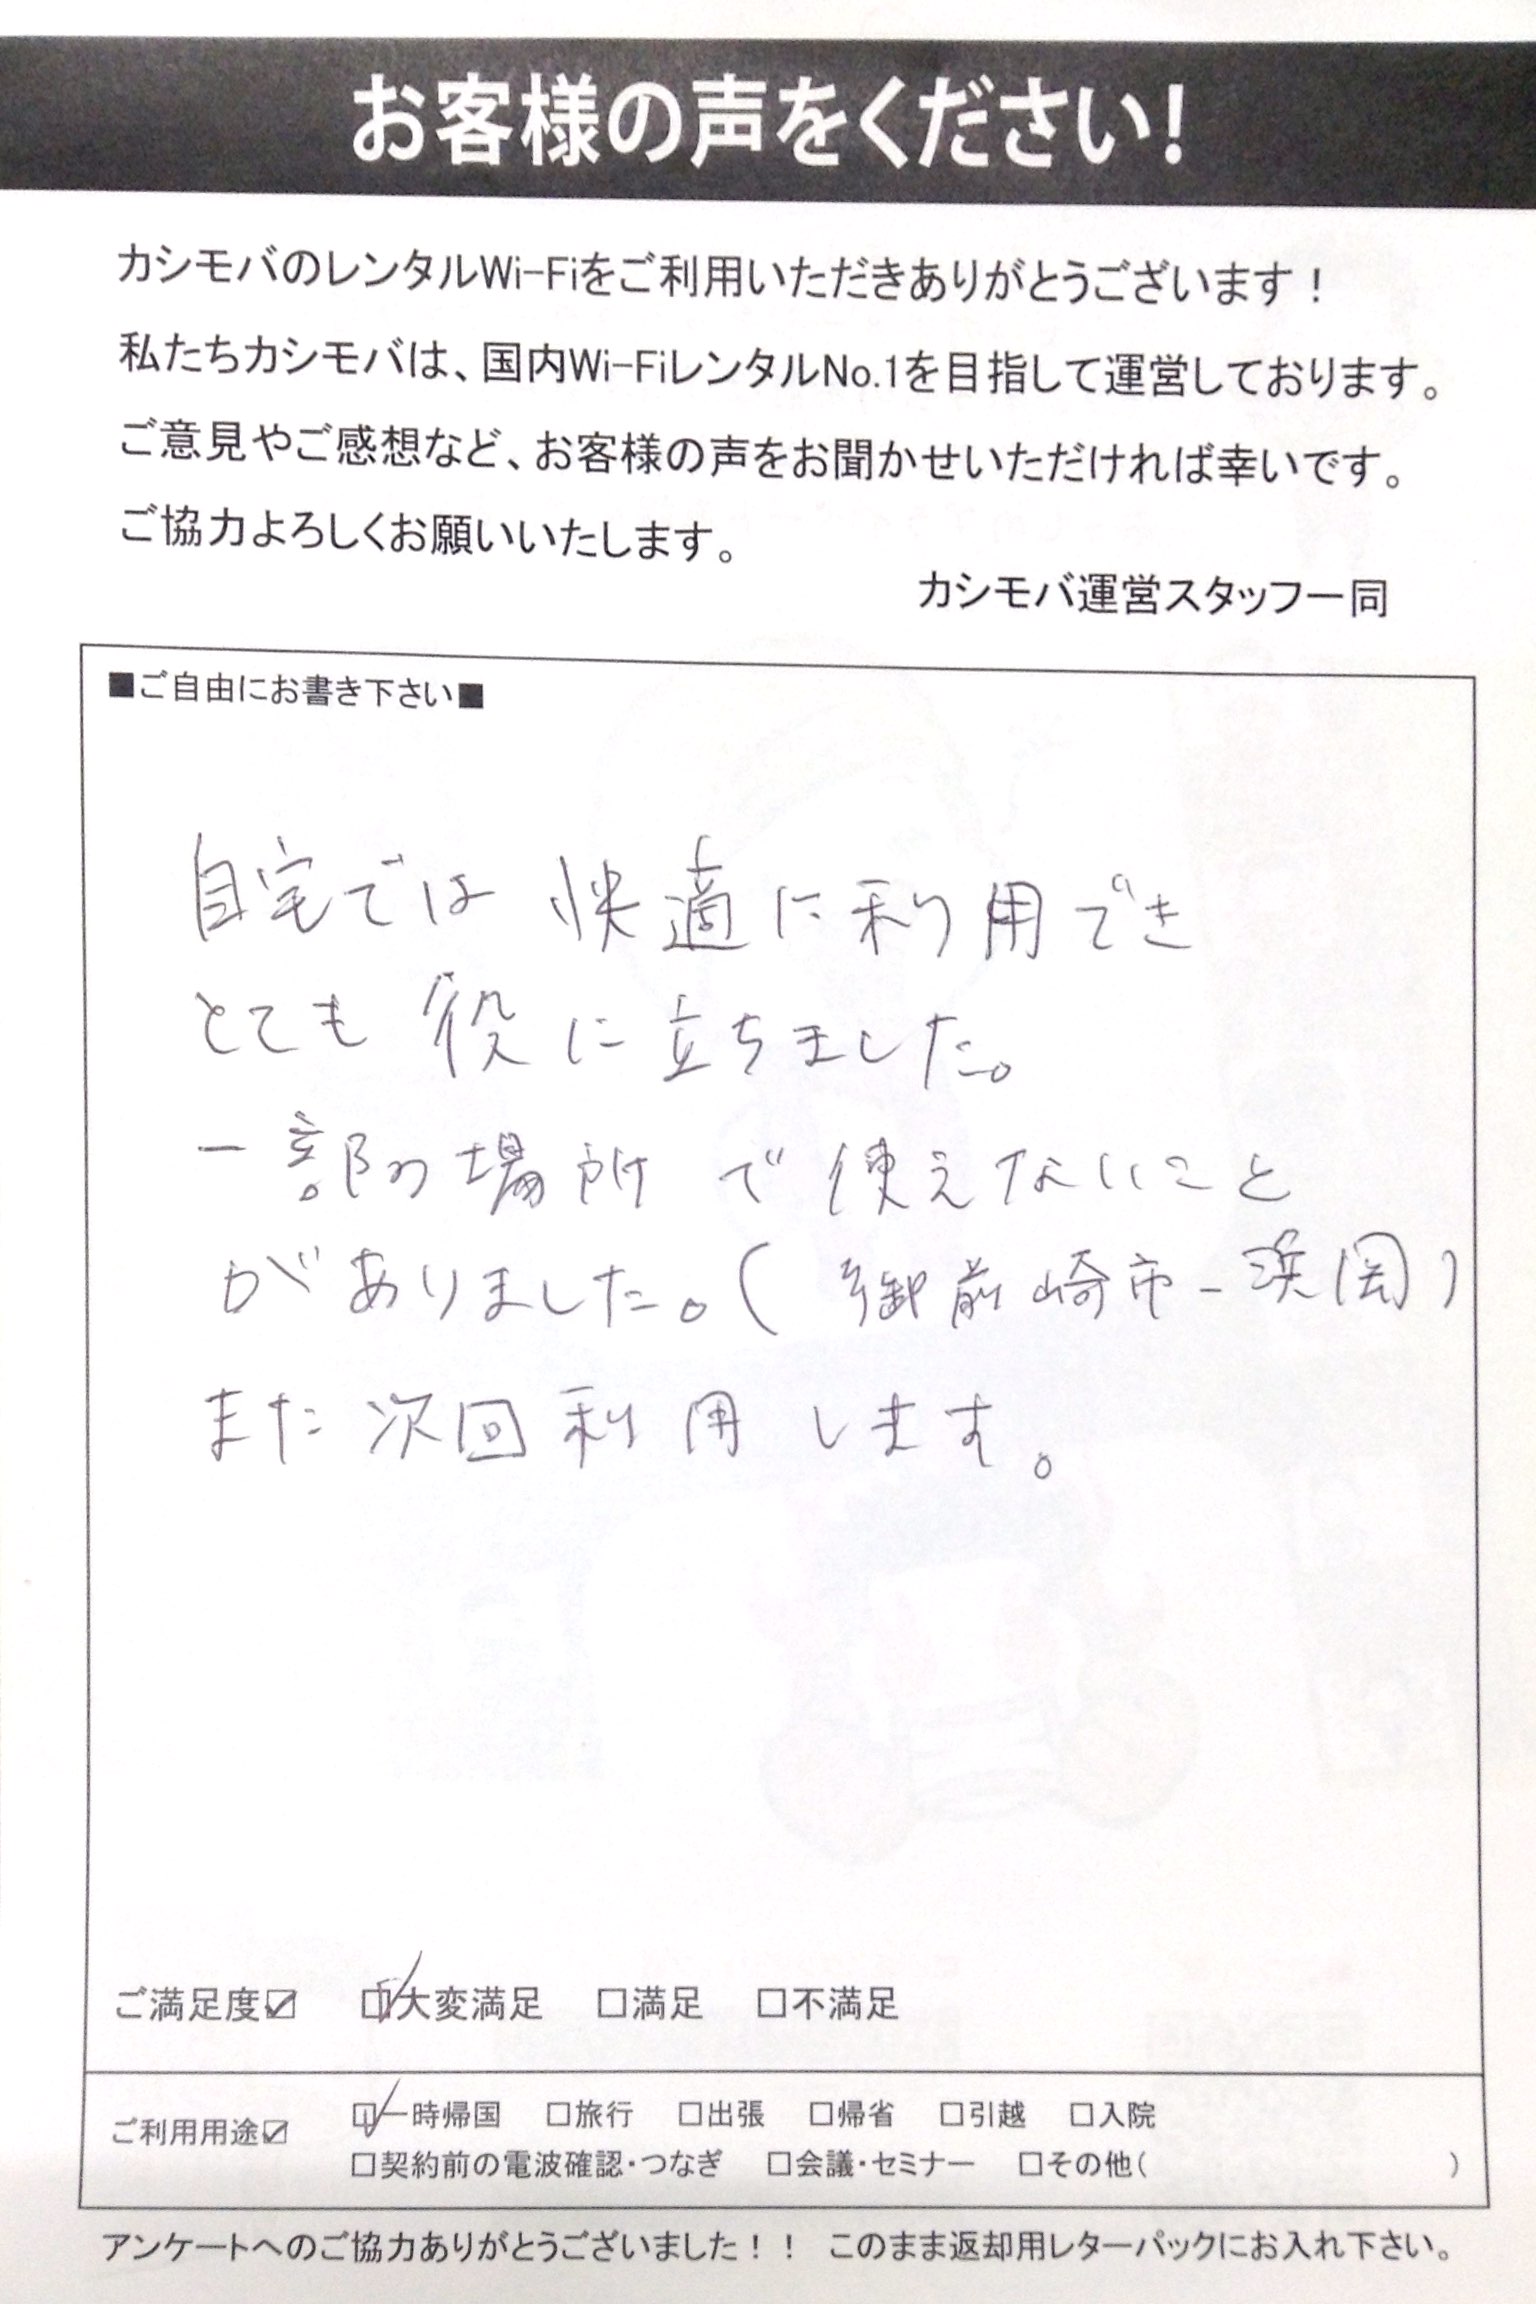 お客様の声をください！
カシモバのレンタルWi-Fiをご利用いただきありがとうございます！
私たちカシモバは、国内Wi-FiレンタルNo.1を目指して運営しております。
ご意見やご感想など、お客様の声をお聞かせいただければ幸いです。
ご協力よろしくお願いいたします。
カシモバ運営スタッフ一同
■ご自由にお書き下さい■
自宅では快適に利用でき
とても役に立ちました。
一部の場所で使えないこと
がありました。(御前崎市-浜岡)
また次回利用します。
ご満足度☑ ☑大変満足 □満足 □不満足
ご利用用途☑ ☑一時帰国 □旅行 □出張 □帰省 □引越 □入院
□契約前の電波確認・つなぎ □会議・セミナー □その他( )
アンケートへのご協力ありがとうございました！！ このまま返却用レターパックにお入れ下さい。